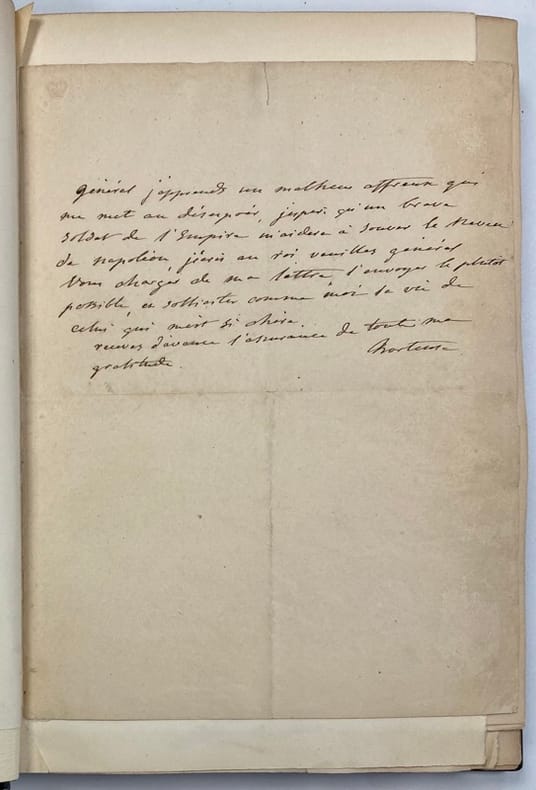 général j'apprends un malheur affreux qui
me met au désespoir, j'esper qu'un brave
soldat de l'Empire m'aidera à sauver le Neveu
de napoléon j'écris au roi, veuillez général
Vous charger de ma lettre l'envoyer le plutot
possible, et solliciter comme moi la vie de
celui qui m'est si chère.
recevez d'avance l'assurance de toute ma
gratitude.
hortense